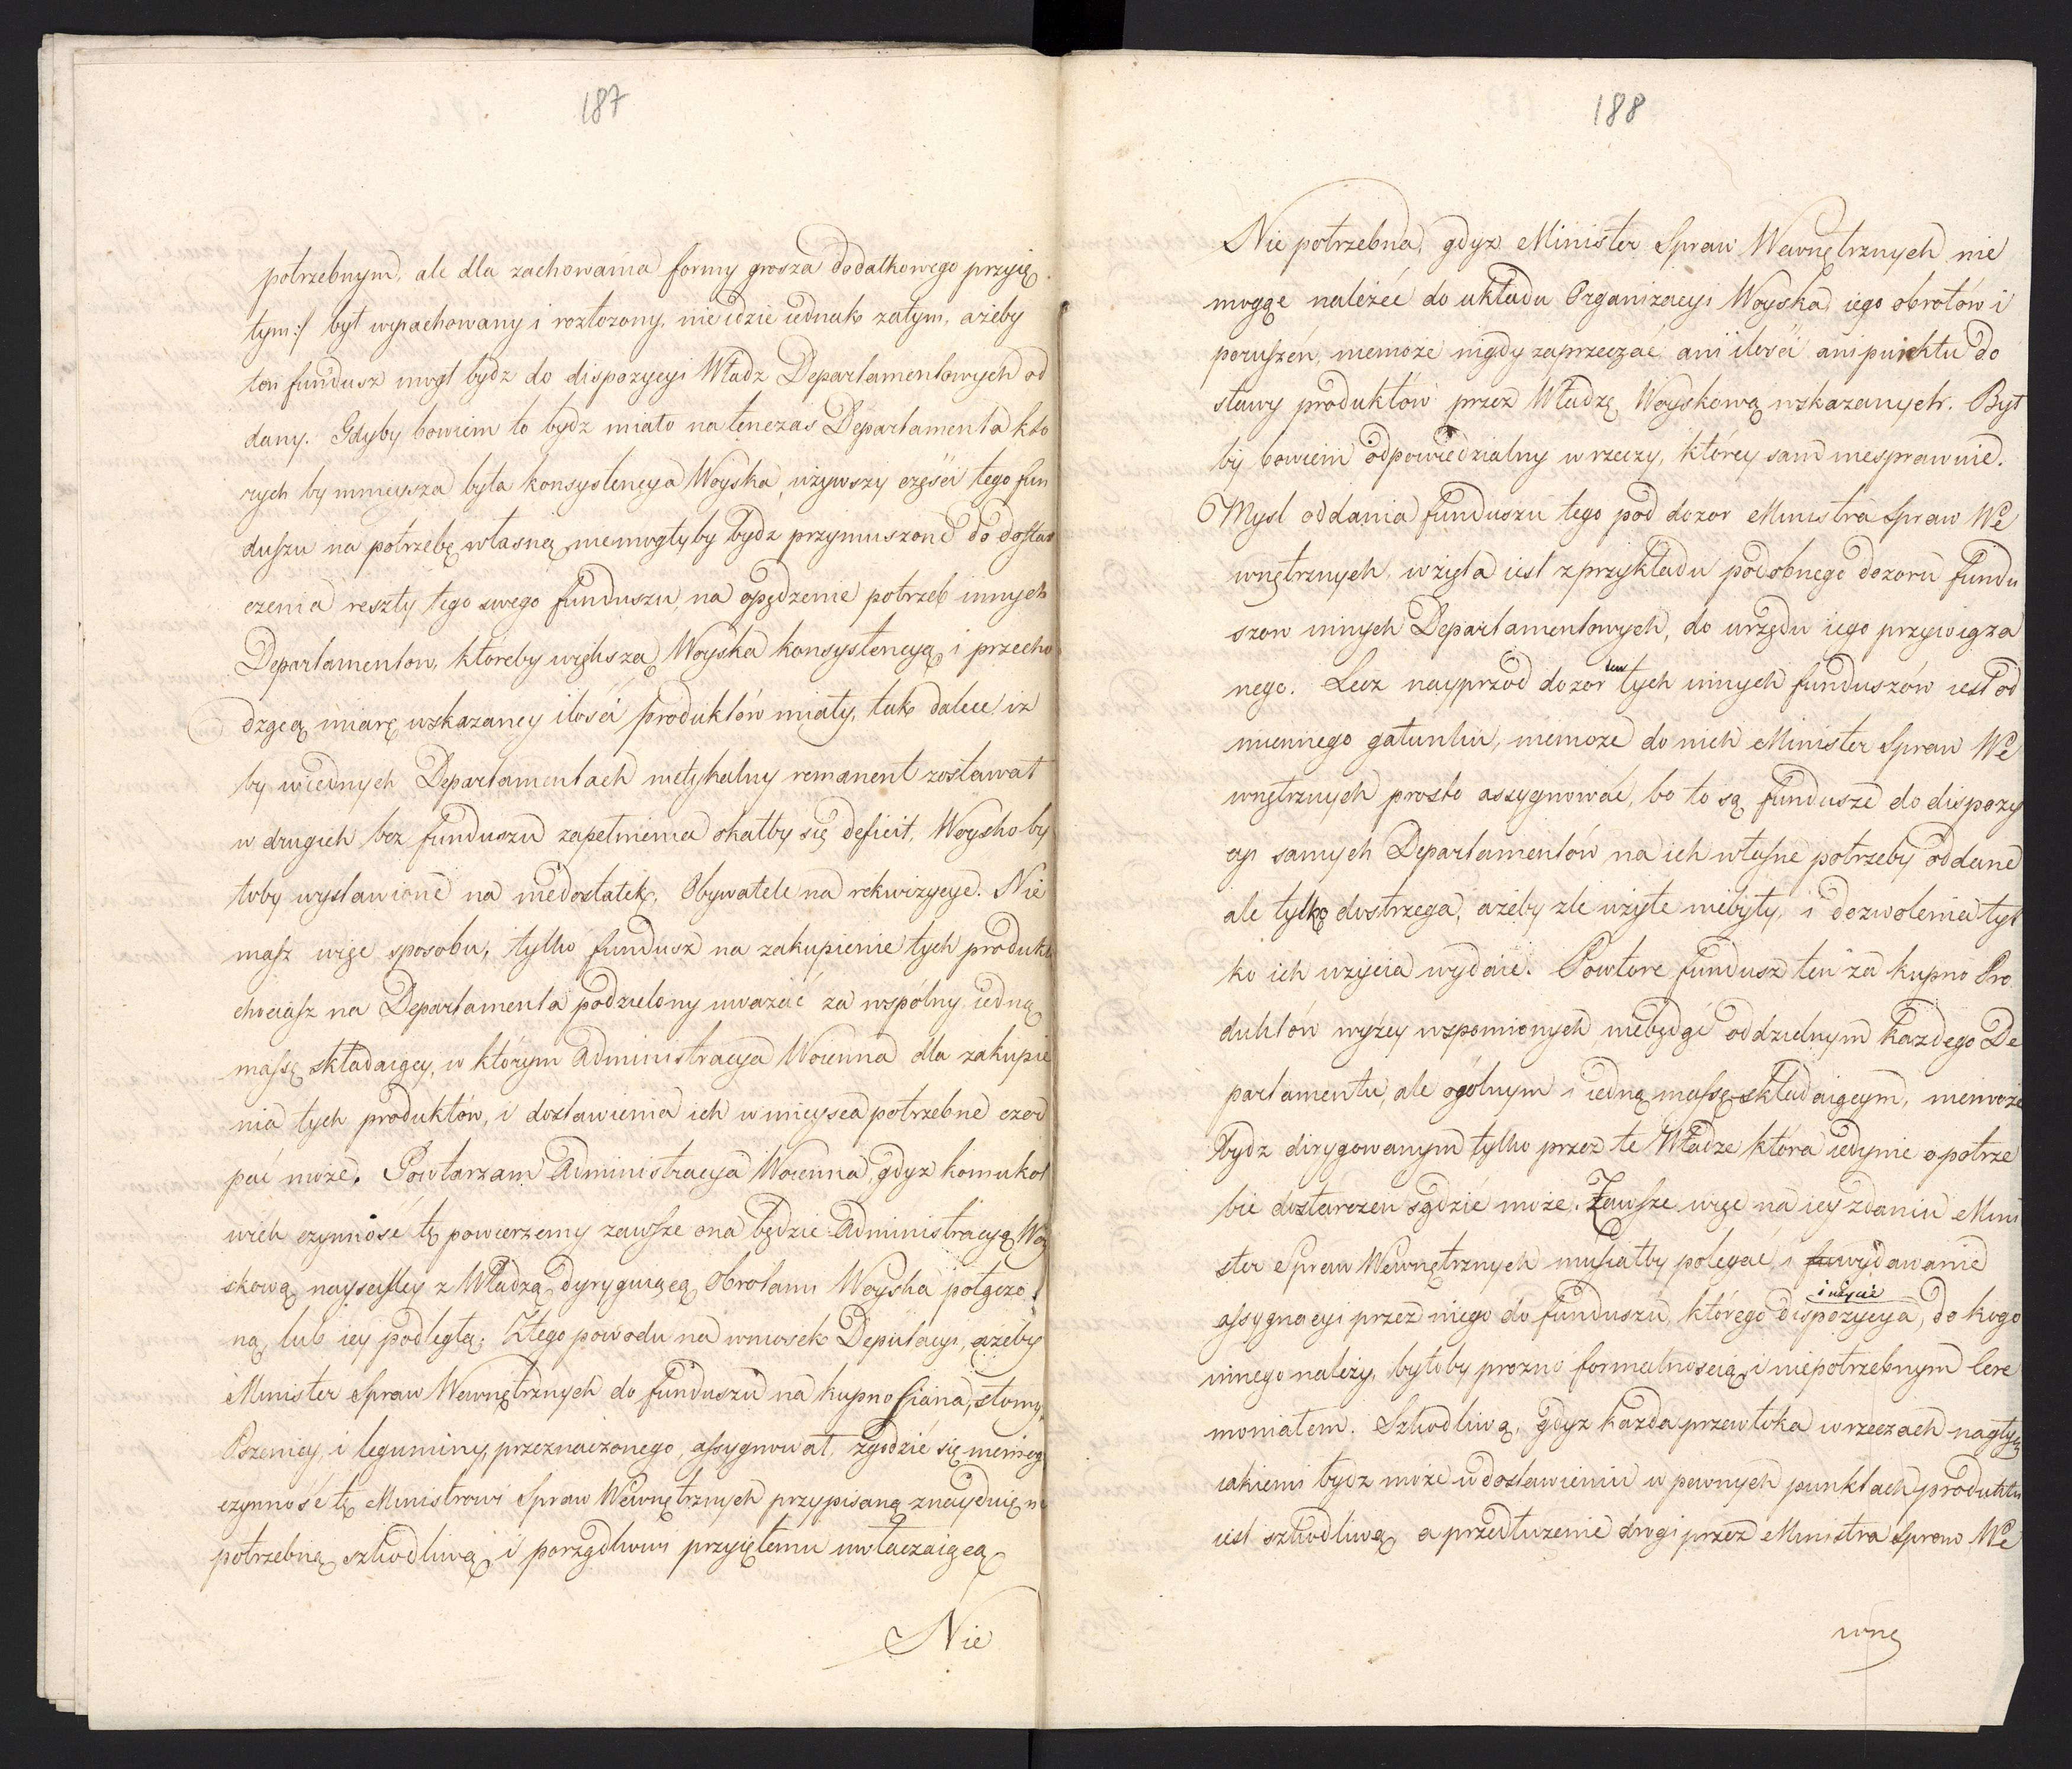 187
potrzebnym, ale dla zachowania formy grosza dodatkowego przyię
tym:/ był wyrachowany i rozłożony, nie idzie iednak zatym, ażeby
ten fundusz mógł bydz do dispozycyi Władz Departamentowych od
dany. Gdyby bowiem to bydz miało na tenczas Departamenta kto
rych by mnieysza była konsystencya Woyska, używszy części tego fun
duszu na potrzebę własną niemogłyby bydz przymuszone do dostar
czenia reszty tego swego funduszu, na opędzenie potrzeb innych
Departamentow, któreby większą Woyska konsystencyą i przecho
dzącą miarę wskazaney ilości produktów miały, tak dalece iż
by w iednych Departamentach nietykalny remanent zostawał
w drugich bez funduszu zapełnienia okazłby się deficit, Woysko by
łoby wystawione na niedostatek, Obywatele na rekwizycye. Nie
masz więc sposobu, tylko fundusz na zakupienie tych produkt
chociasz na Departamenta podzielony uważać za wspólny iedną
massę składaiący, w którym Administracya Woienna dla zakupie
nia tych produktów, i dostawienia ich w mieysca potrzebne czer
pać może. Powtarzam Administracya Woienna, gdyż komukol
wiek czynność tę powierzemy zawsze ona będzie Administracyą Woy
skową nayściśley z Władzą dyryguiącą Obrotami Woyska połączo
ną, lub iey podległą; Z tego powodu na wniosek Deputacyi, ażeby
Minister Spraw Wewnętrznych do funduszu na kupno Siana, słomy,
Pszenicy, i leguminy, przeznaczonego, assygnował, zgodzić się niemogę
czynność tę Ministrowi Spraw Wewnętrznych przypisaną znayduię nie
potrzebną szkodliwą i porządkowi przyiętemu uwłaczaiącą
Nie
188
Nie potrzebna, gdyz Minister Spraw Wewnętrznych nie
mogąc należeć do układu Organizacyi Woyska, iego obrotów i
poruszeń, niemoże nigdy zaprzeczać ani ilości ani punktu do
stawy produktów przez Władzę Woyskową wskazanych. Był
by bowiem odpowiedzialny w rzeczy, którey sam niesprawuie.
Mysl oddania funduszu tego pod dozor Ministra Spraw We
wnętrznych, wzięta iest z przykładu podobnego dozoru fundu
szow innych Departamentowych, do urzędu iego przywiąza
nego. Lecz nayprzód dozor ten tych innych funduszów iest od
miennego gatunku, niemoże do nich Minister Spraw We
wnętrznych prosto assygnować, bo to są fundusze do dispozy
cyi samych Departamentów, na ich własne potrzeby oddane
ale tylko dostrzega, ażeby zle użyte niebyły, i dozwolenia tyl
ko ich użycia wydaie. Powtore fundusz ten za kupno Pro
duktów wyżey wspomionych niebędąć oddzielnym każdego De
partamentu, ale ogólnym i iedną massę składaiącym, niemoże
bydz dirygowanym tylko przez te Władze która iedynie o potrze
bie dostarczeń sądzić może. Zawsze więc na iey zdaniu Mini
ster Spraw Wewnętrznych musiałby polegać, i wydawanie
assygnacyi przez niego do funduszu, którego dispozycya i użycie, do kogo
innego należy, byłoby prozno formalnoscią i niepotrzebnym Cere
moniałem. Szkodliwą, gdyz każda przewłoka w rzeczach nagłych
iakiemi bydz może w dostawieniu w pewnych punktach produktu
iest szkodliwą a przedłużenie drogi przez Ministra Spraw We
wnę